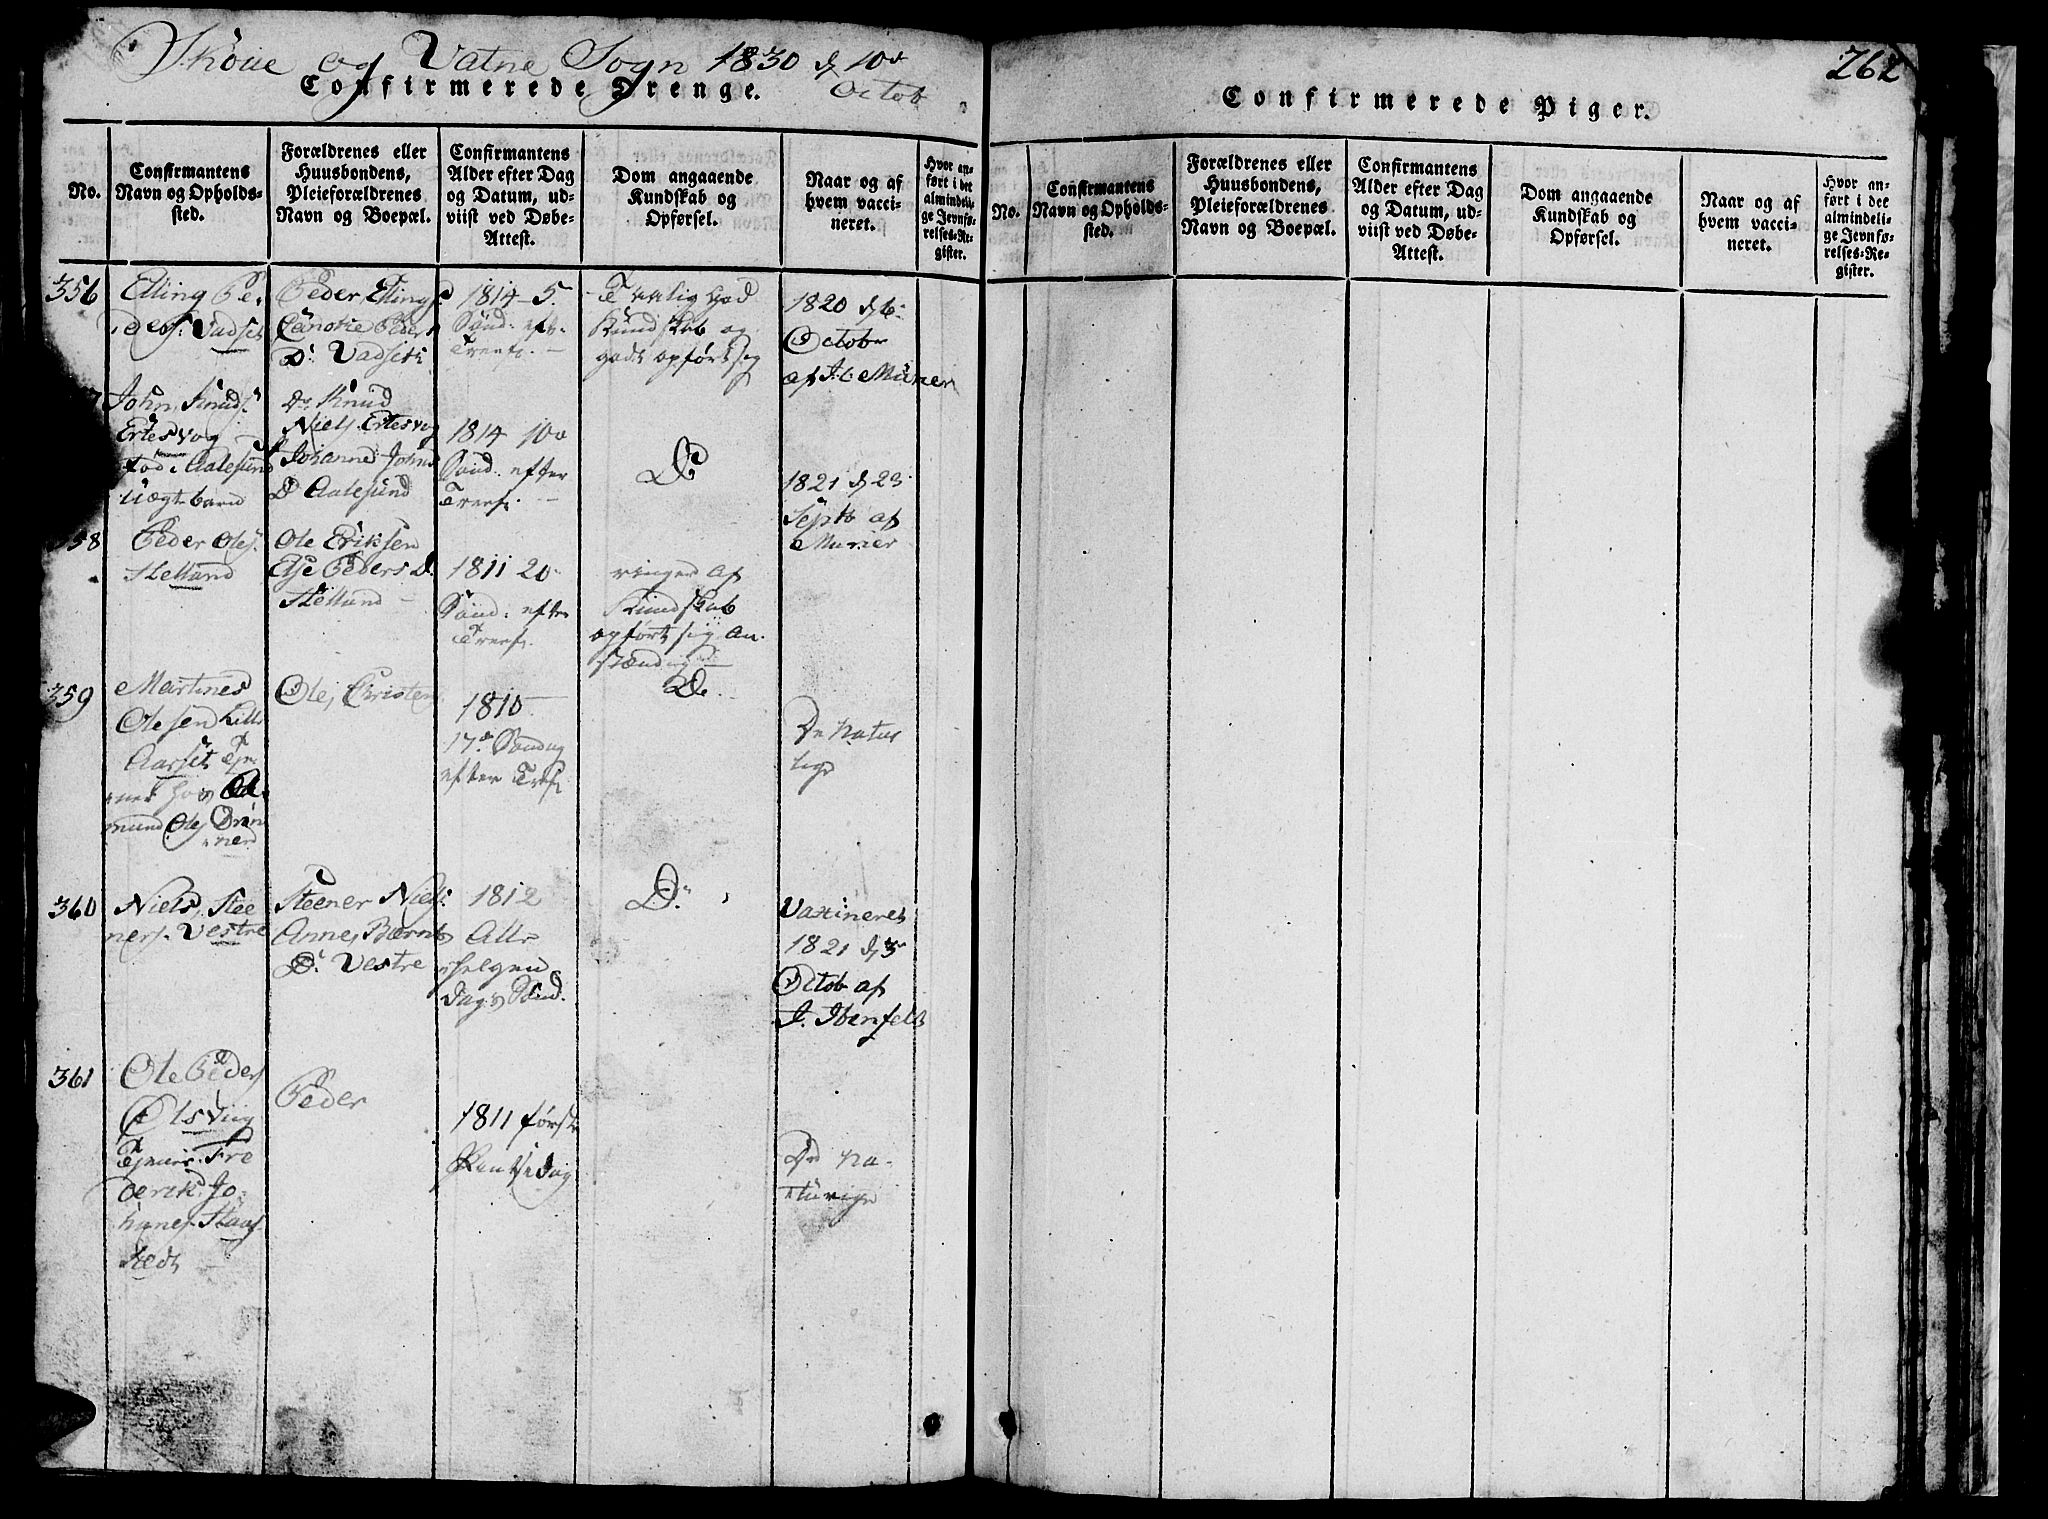 Skoue og Vatne Sogn 1830 d 10de
Octob
Confirmerede Drenge.
No.
Confirmantens
Navn og Opholds-
sted.
Forældrenes eller
Huusbondens,
Pleieforældrenes
Navn og Boepæl.
Confirmantens
Alder efter Dag
og Datum, ud-
viist ved Døbe-
Attest.
Dom angaaende
Kundskab og
Opførsel.
Naar og af
hvem vacci-
neret.
Hvor an-
ført i det
almindeli-
ge Jevnfø-
relses-Re-
gister.
356
Elling Pe-
ders. Vadset
Peder Ellings
Peders
D. Vadset
1814 5.
Sønd. eft.
Trenf.
Taalig god
Kundskab og
godt opført sig
1820 d 6
Octobr
af J. C. Murier
John, Knuds.
Ertesvog
fød i Aalesund
Uægte barn
Knud
Niels. Ertesvog
Johanne Johns
D Aalesund
1814 10de
Sønd. efter
Trenf.
Do
1821 d 23
Septb af
Murier
58
Peder Oles.
Stellund
Ole Eriksen
Else Peders D.
Stellund
1811 20
Sønd. efter
Trenf.
ringer af
Kundskab
opført sig an-
stændig
359
Martines
Olesen Lill
Aarset Tje-
hos
mund Oles
Ole, Christen
1810
17de Søndag
efter Tref
Do
De Natur
lige
360
Niels, Stee
ners. Vestre
Steener Niels.
Anne, Bærnt
D. Vestre
1812
Alle
helgen
dags Sønd.
Do
Vaxineret
1821 d 3
Octob af
J. Ibenfeldt
361
Ole Peders
Olsviig
Tjener Fre
derik Jo
hanes. Slaas
stedt
Peder
1811 første
Pentsedag
De na-
turige
262
Confirmerede Piger.
No.
Confirmantens
Navn og Opholds-
sted.
Forældrenes eller
Huusbondens,
Pleieforældrenes
Navn og Boepæl.
Confirmantens
Alder efter Dag
og Datum, ud-
viist ved Døbe-
Attest.
Dom angaaende
Kundskab og
Opførsel.
Naar og af
hvem vacci-
neret.
Hvor an-
ført i det
almindeli-
ge Jevnfø-
relses-Re-
gister.